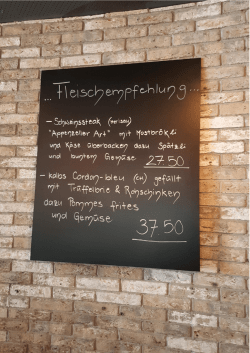 ...Fleischempfehlung...
- Schweinssteak
"Appenzeller Art" mit Mostbröckli
und Käse überbacken dazu Spätzli
und buntem Gemüse 27.50
- Kalbs Cordon-bleu (CH) gefüllt
mit Trüffelbrie & Rohschinken
dazu Pommes frites
und Gemüse
37.50